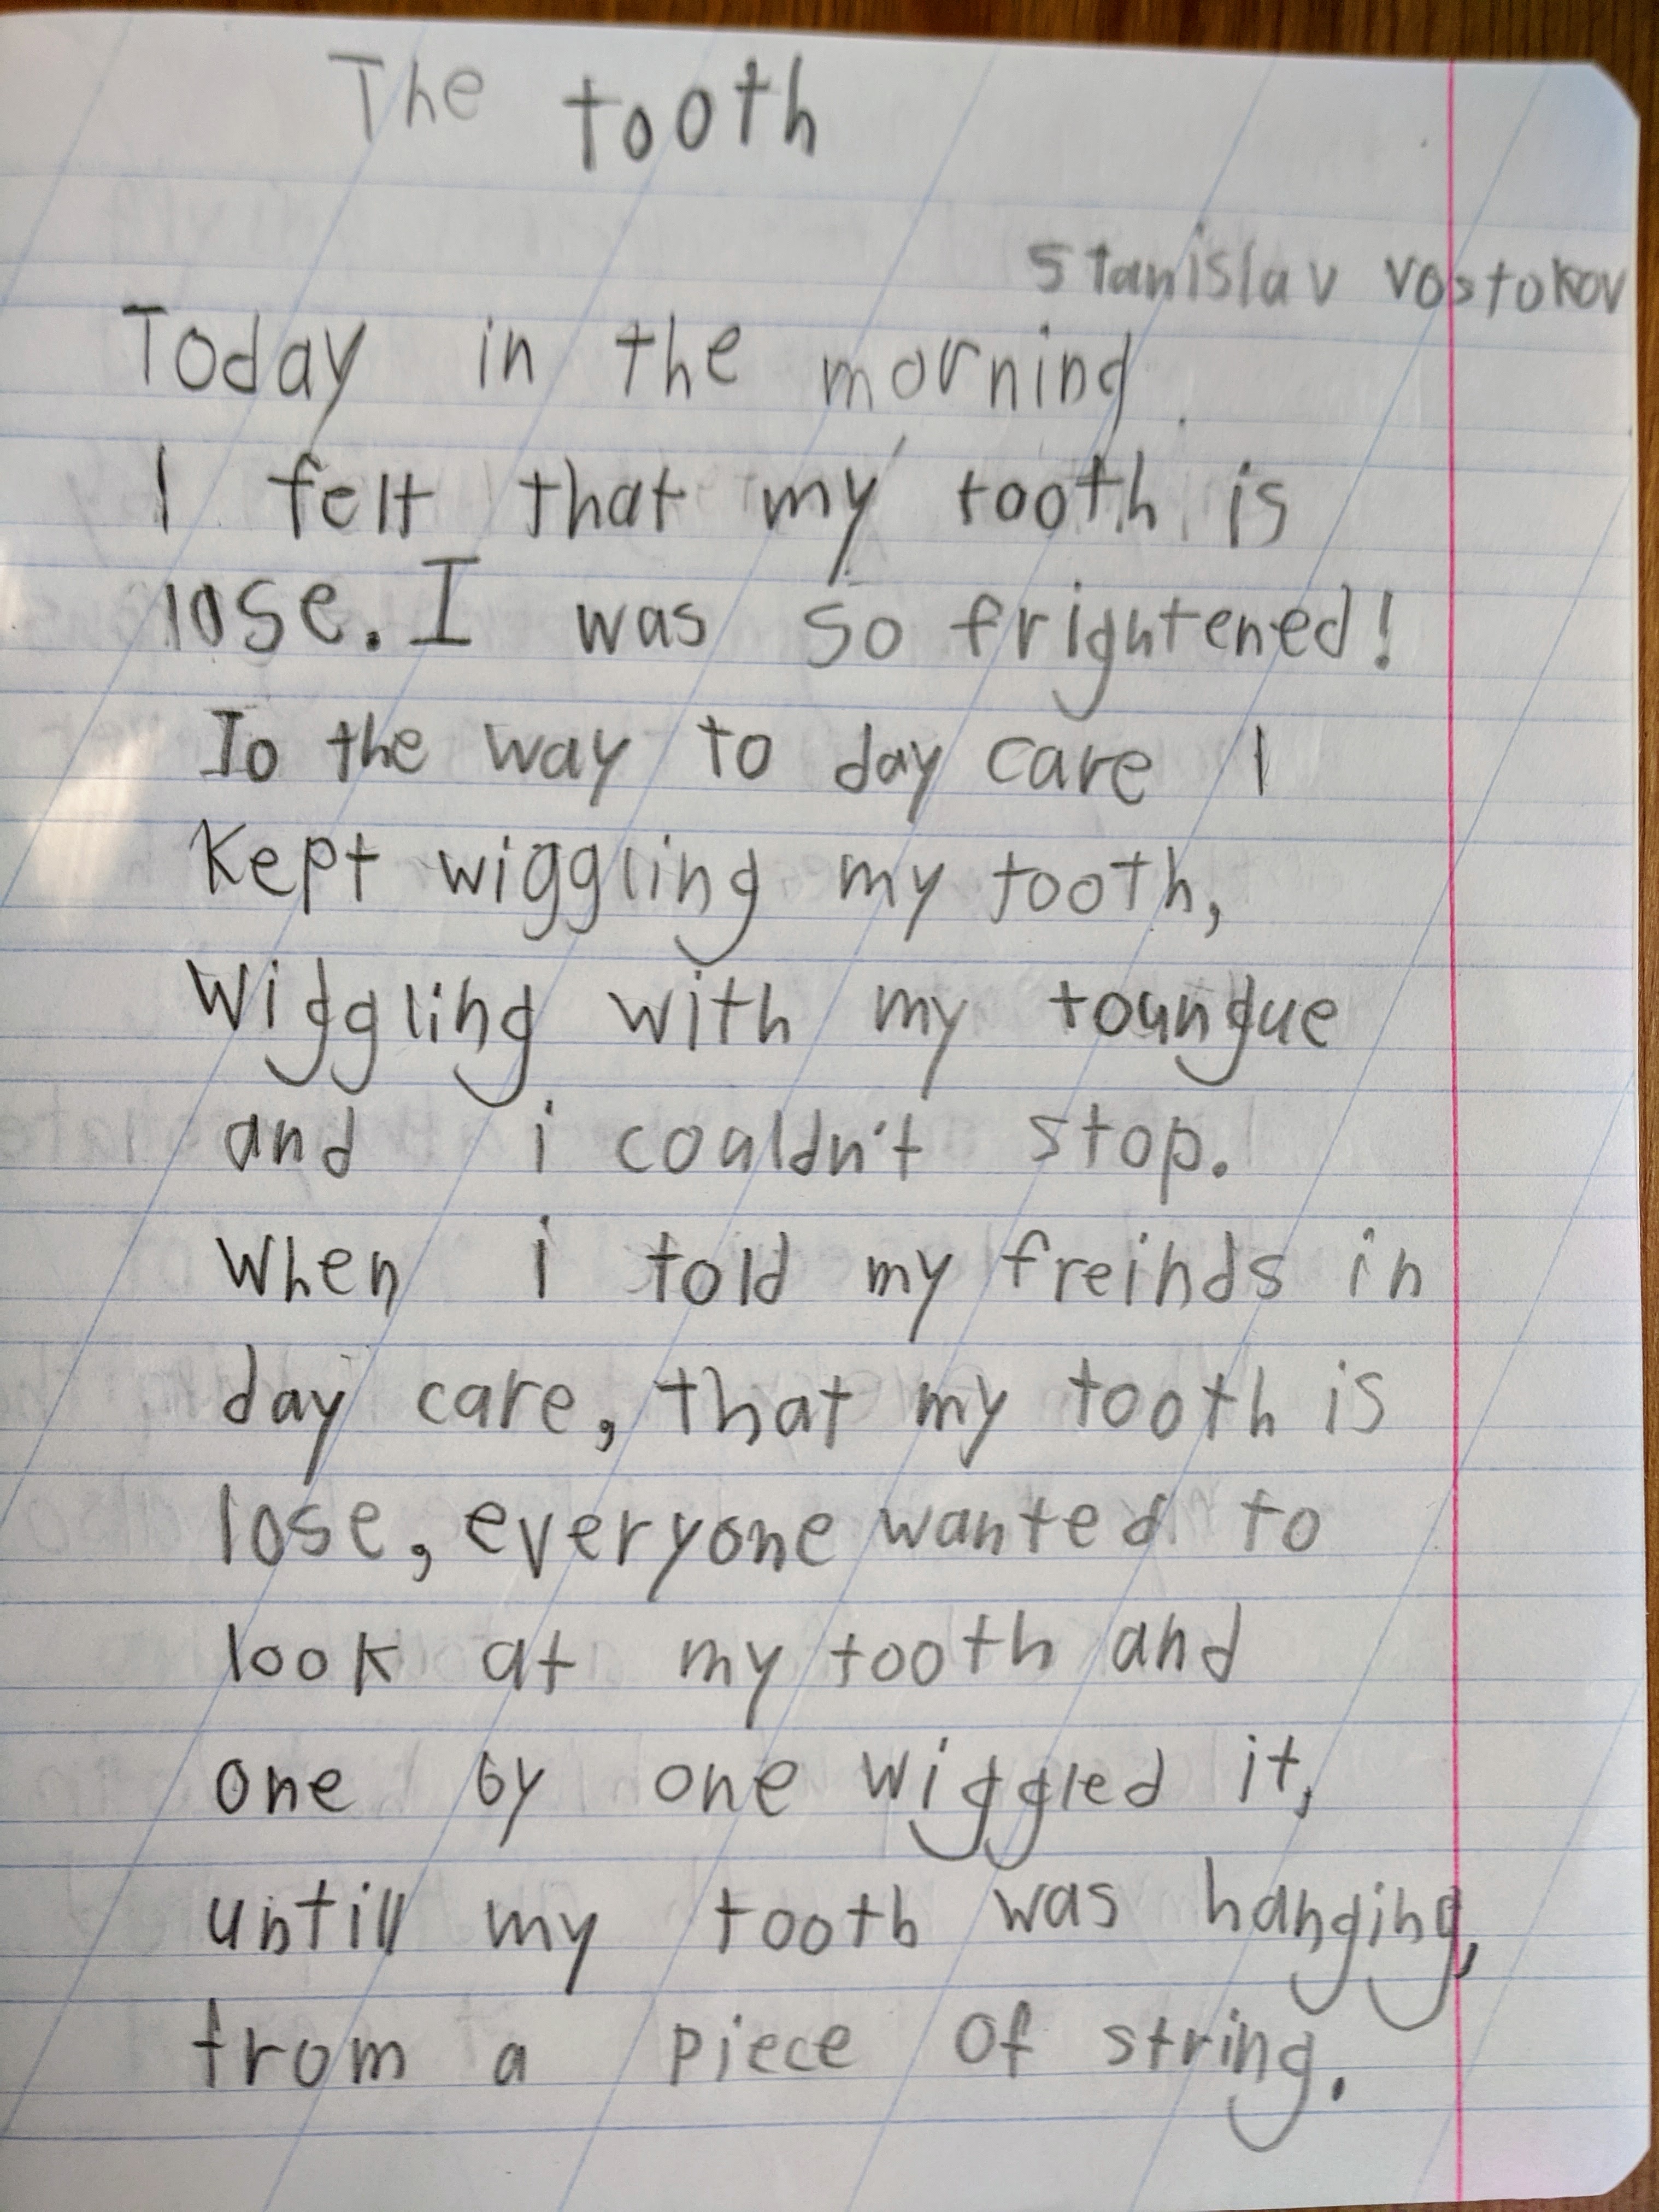 The tooth
Stanislav Vostokov
Today in the morning
I felt that my tooth is
lose. I was so frightened!
To the way to day care I
Kept wiggling my tooth,
Wiggling with my toungue
and i couldn't stop.
When i told my freinds in
day care, that my tooth is
lose, everyone wanted to
look at my tooth and
one by one wiggled it,
untill my tooth was hanging,
from a piece of string.